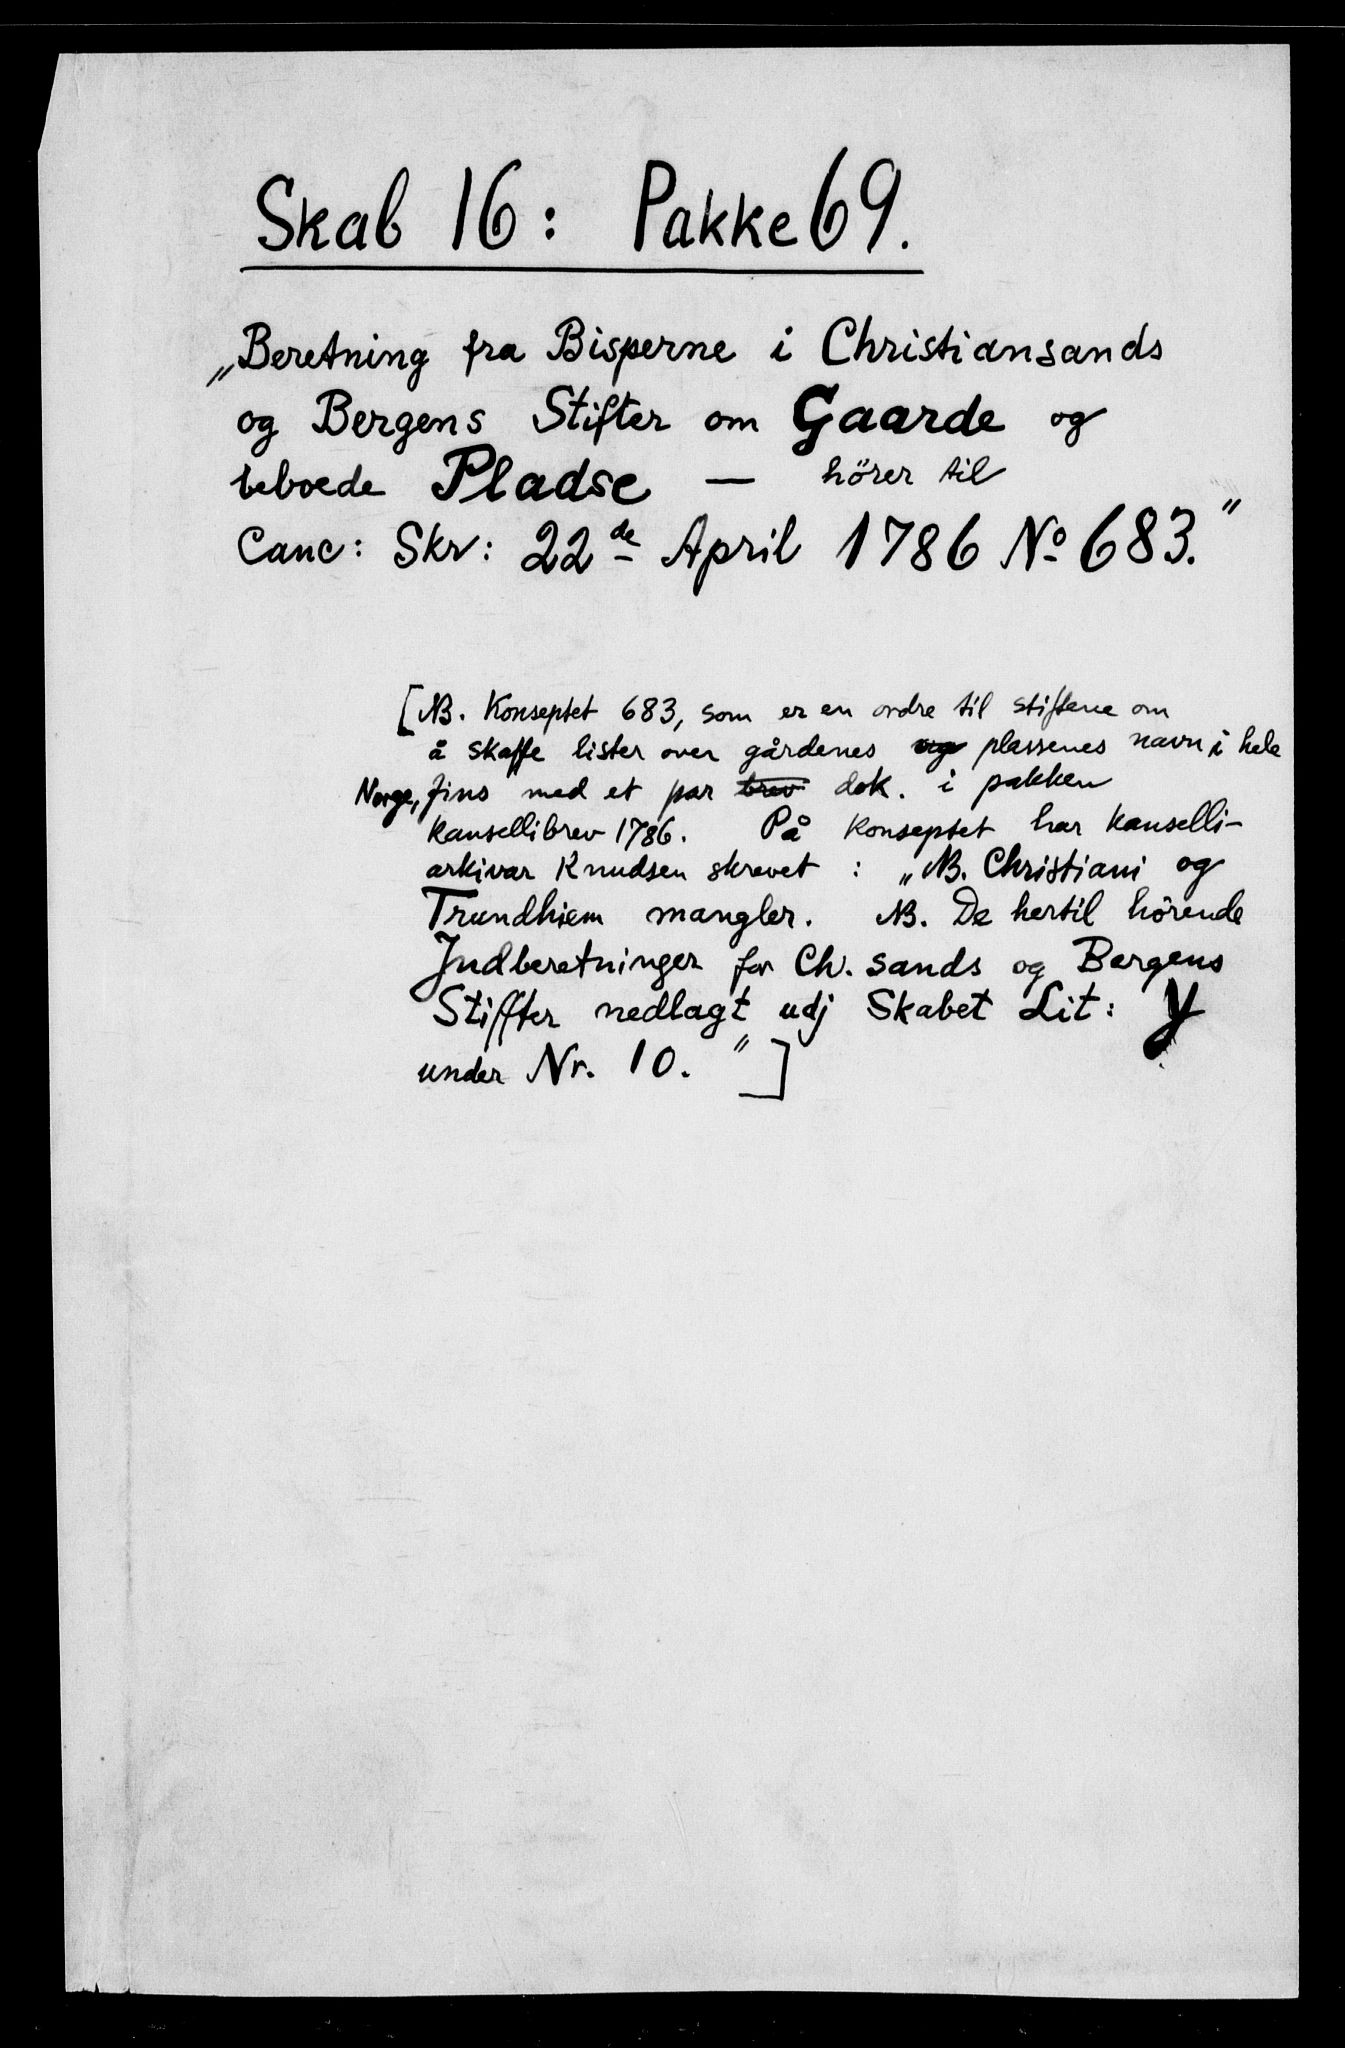 Skab 16: Pakke 69.
„Beretning fra Bisperne i Christiansands
og Bergens Stifter om Gaarde og
beboede Pladse — hörer til
Canc: Skr: 22de April 1786 No 683."
[NB. Konseptet 683, som er en ordre til stiftene om
å skaffe lister over gårdenes og plassenes navn i hele
Norge, fins med et par brev dok. i pakken
kansellibrev 1786. På konseptet har kanselli-
arkivar Knudsen skrevet : „NB. Christiani og
Trundhiem mangler. NB. De hertil hörende
Indberetninger for Ch. sands og Bergens
Stiffter nedlagt udj Skabet Lit: Y
under Nr. 10. "]